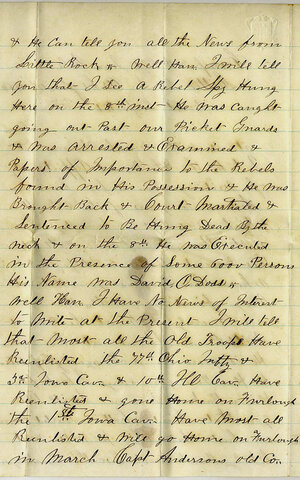 & He can tell you all the News from
Little Rock. Well Han I will tell
you that I see A Rebel Spy Hung
Here on the 8th inst He was Caught
going out Past our Picket Guards
& was Arrested & Examined &
Papers of Importance to the Rebels
found in His Possession & He was
Brought Back & Court Martialed &
Sentenced to Be Hung Dead By the
neck & on the 8th He was Executed
in the Presence of Some 6000 Persons
His Name was David O Dodd
Well Han I Have No News of Interest
to Write at the Present I will tell
that Most all the Old Troops Have
Reinlisted the 77th Ohio Infty &
3rd Iowa Cav. & 10th Ill Cav. Have
Reinlisted & gone Home on Furlough
the 1st Iowa Cav. Have Most all
Reinlisted & will go Home on Furlough
in March Capt Andersons old Co.